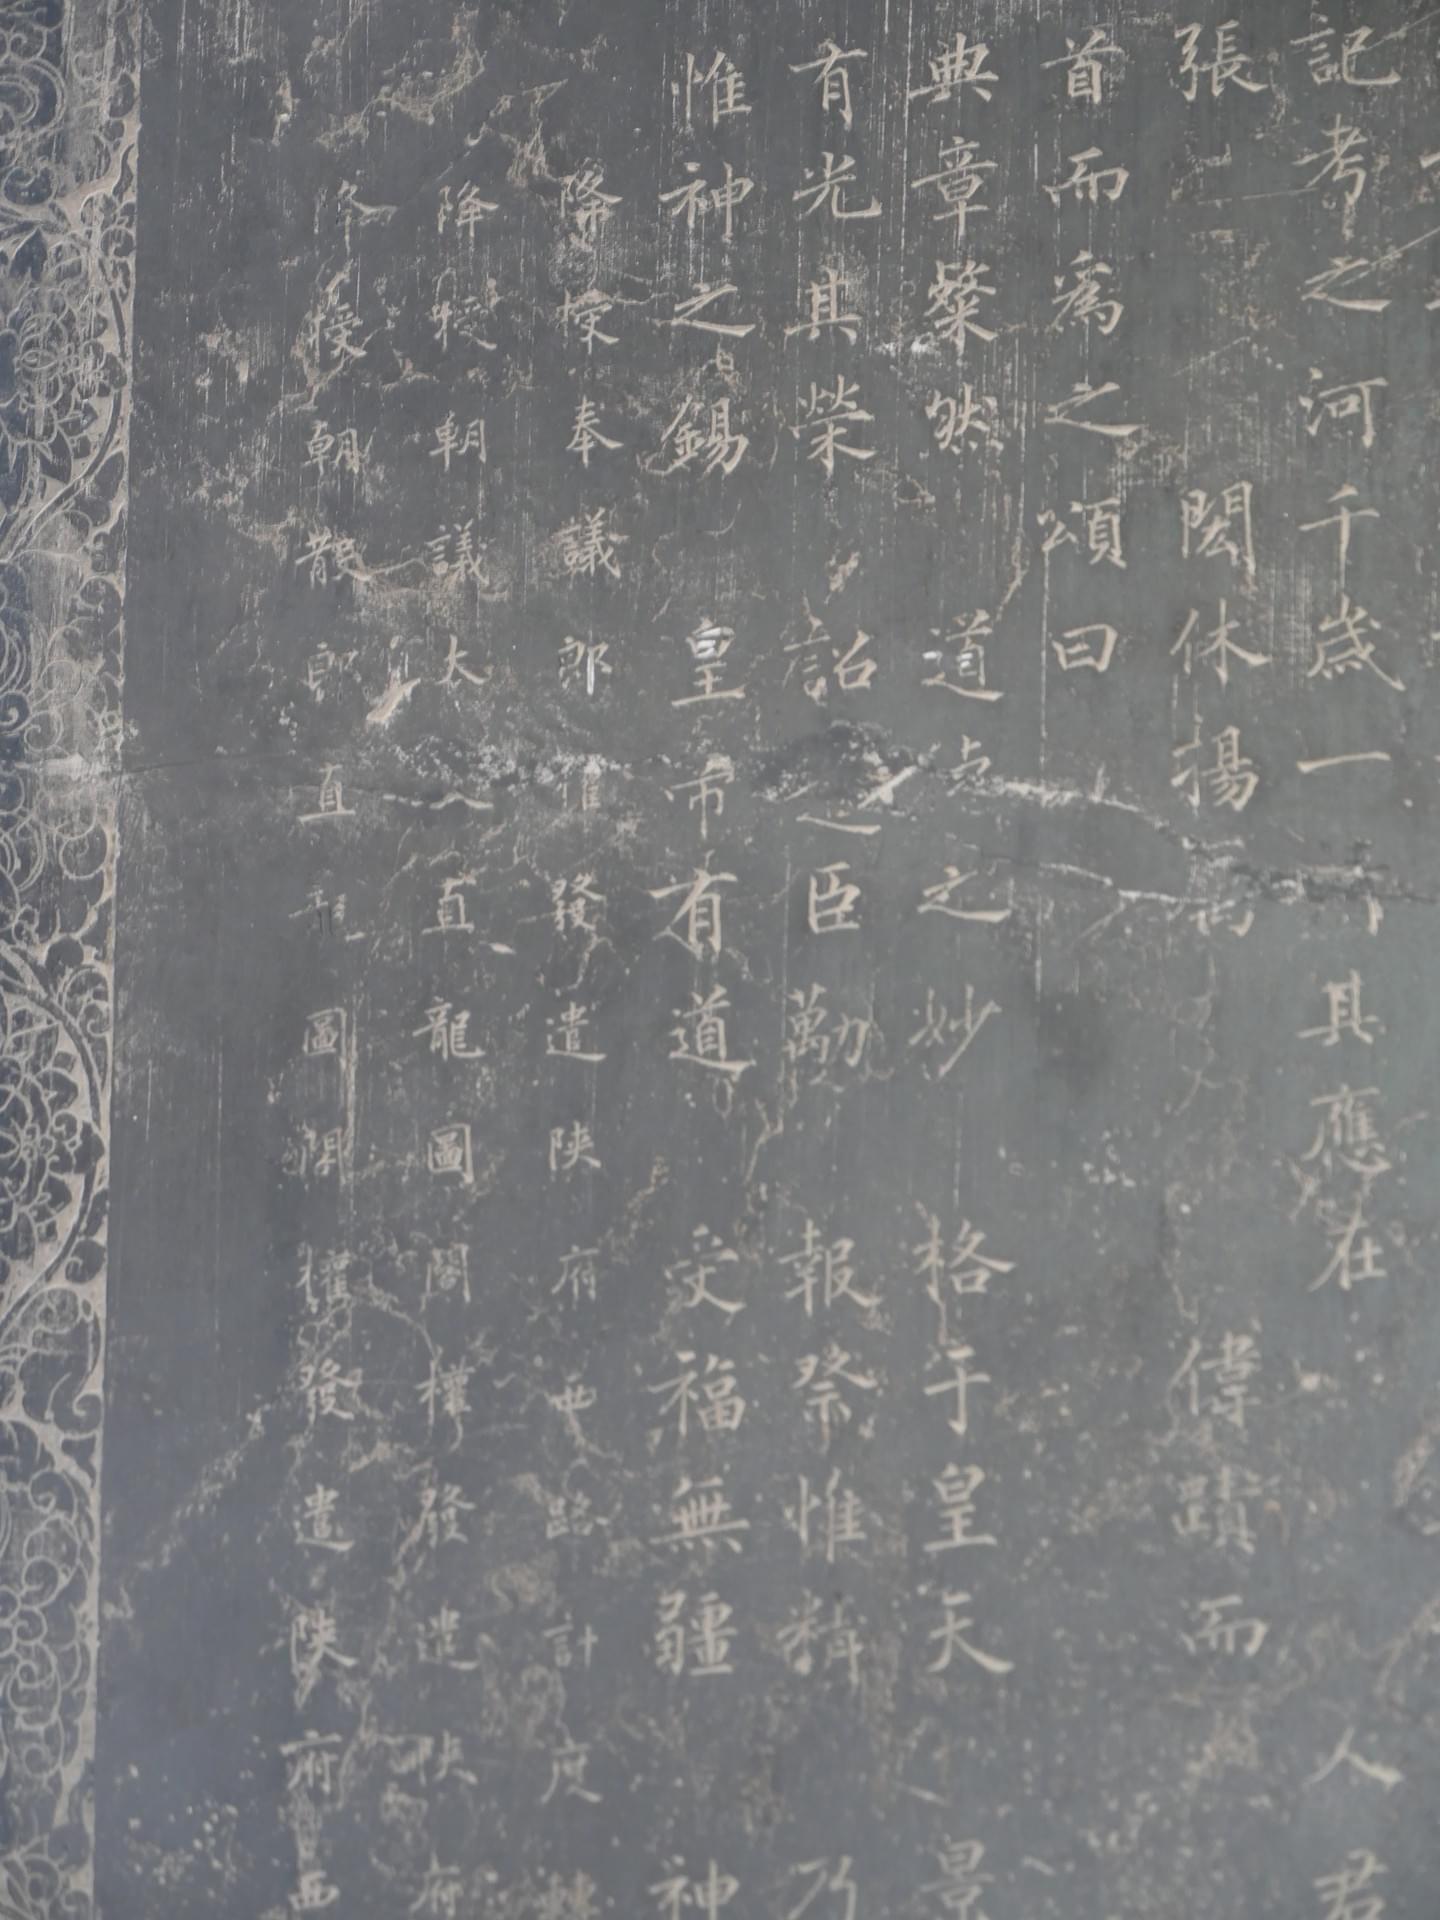 記考之河千歲一其應在人君
張閎休揚偉蹟而
首而為之頌曰
典章粲然道之妙格于皇天景
有光其榮詔臣勱報祭惟精乃
惟神之錫皇帝有道受福無疆神
降授奉議郎發遣陝府西路計度轉
降授朝議大直龍圖閣權發遣陝府
降授朝散郎直龍圖閣權發遣陝府西